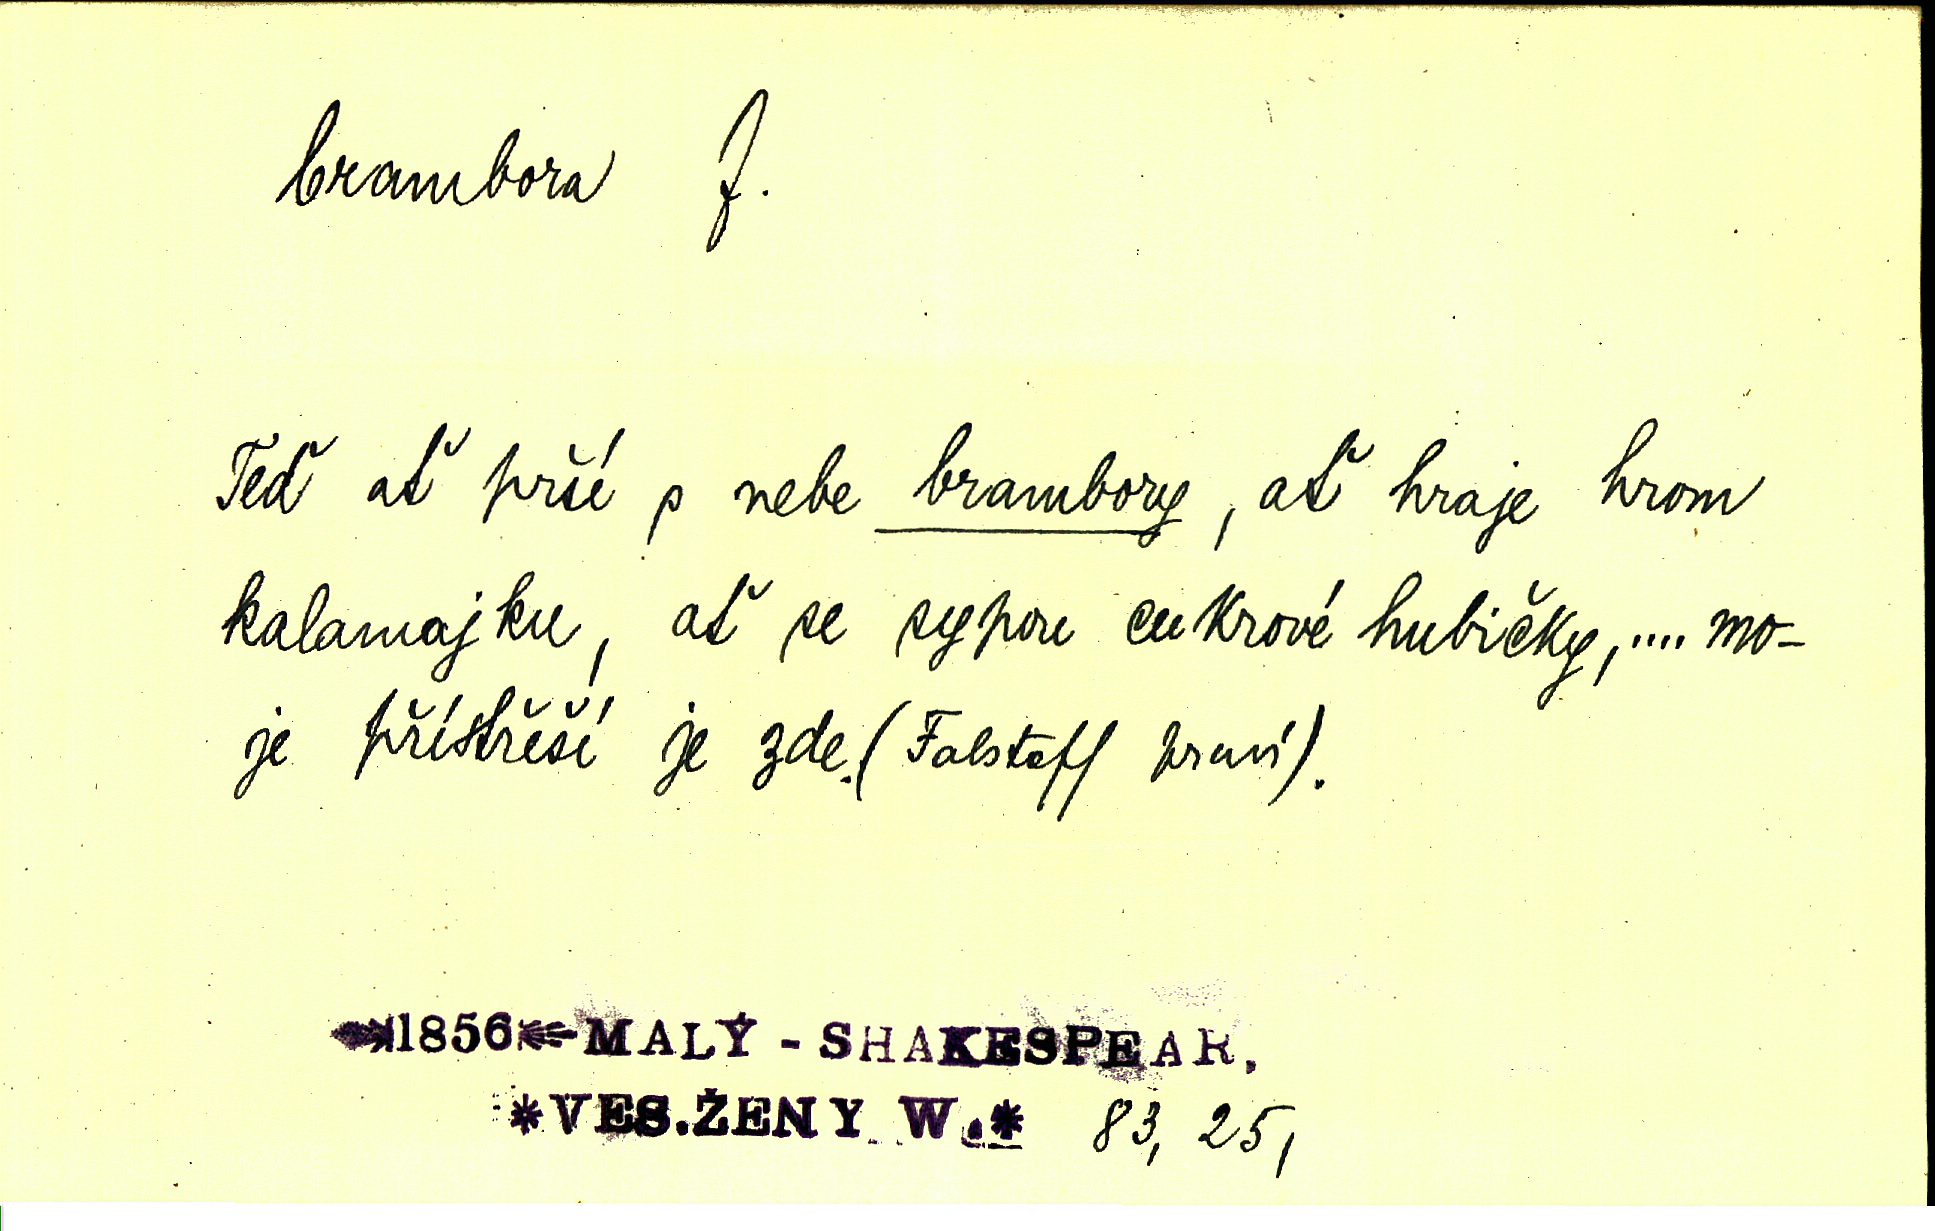 brambora f.
Teď ať prší s nebe brambory, ať hraje hrom
kalamajku, ať se sypou cukrové hubičky,.... mo-
je přístřeší je zde.(Falstaff praví).
1856 MALÝ - SHAKESPEAR.
*VES.ŽENY W.* 83, 25,